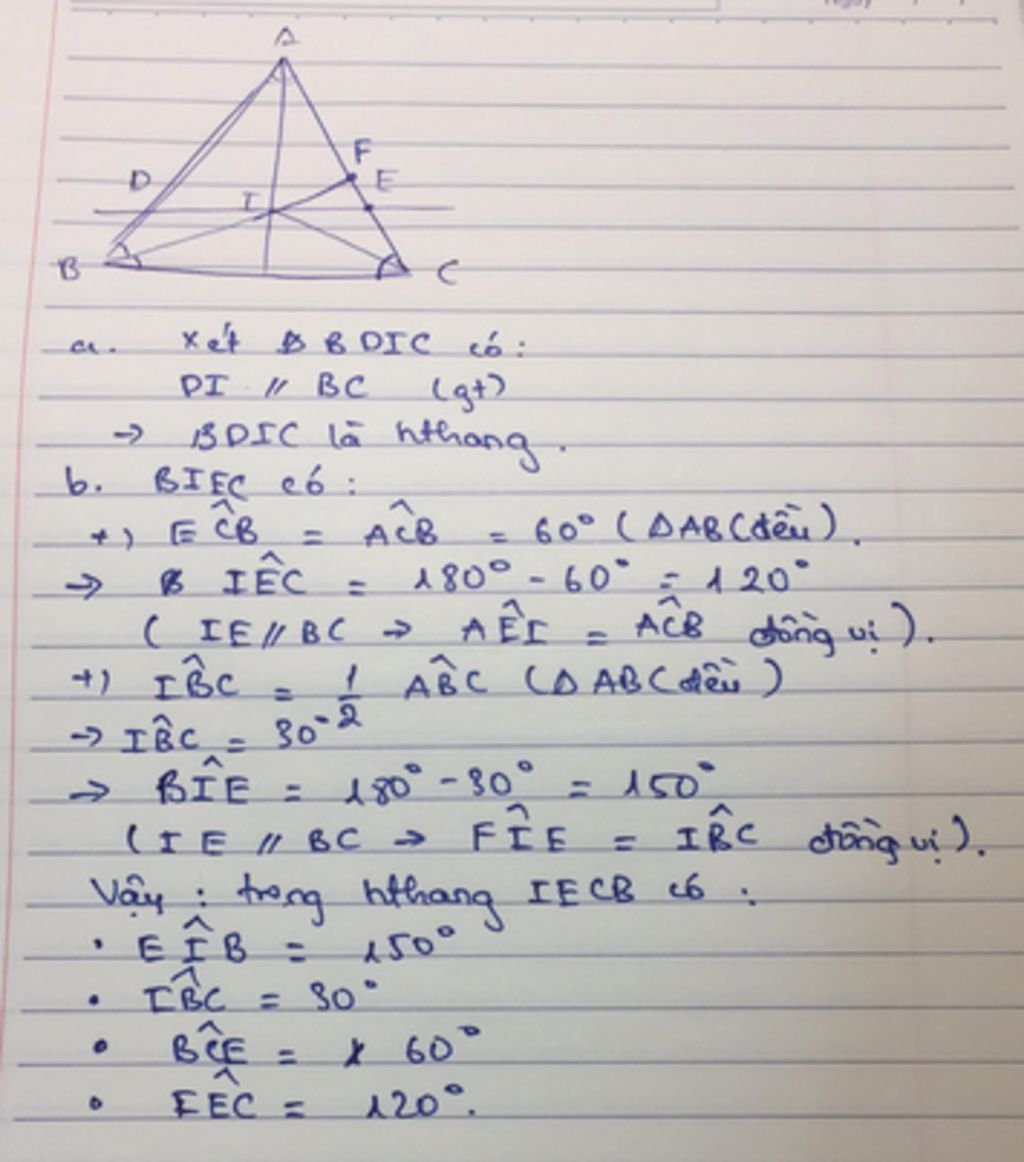 A
F
D
E
I
B
C
a. Xét BDIC có:
DI // BC (gt)
→ BDIC là hthang.
b. BIEC có:
+) EĈB = AĈB = 60° (ΔABC đều).
→ IÊC = 180° - 60° = 120°
( IE // BC → AÊI = AĈB đồng vị).
+) IB̂C = 1/2 AB̂C (ΔABC đều)
→ IB̂C = 30°
→ BÎE = 180° - 30° = 150°
(IE // BC → FÎE = IB̂C đồng vị).
Vậy : trong hthang IECB có :
• EÎB = 150°
• IB̂C = 30°
• BĈE = 60°
• IÊC = 120°.